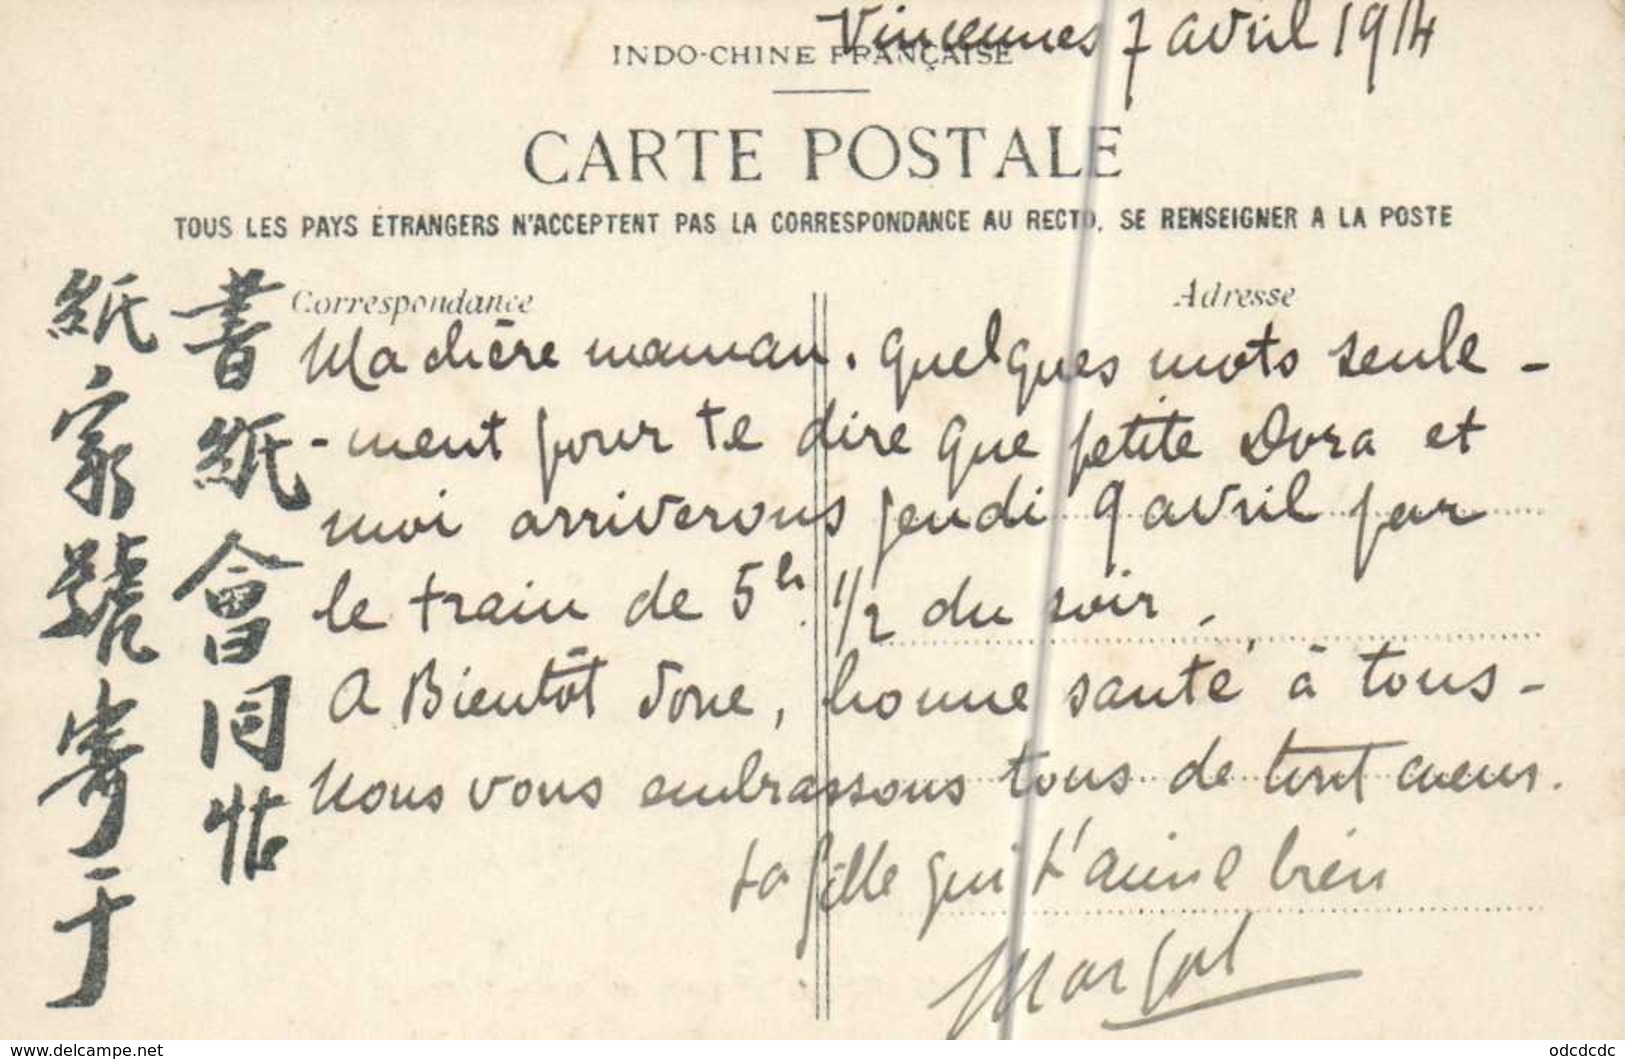 Vincennes 7 avril 1914
INDO-CHINE FRANÇAISE
CARTE POSTALE
TOUS LES PAYS ÉTRANGERS N'ACCEPTENT PAS LA CORRESPONDANCE AU RECTO, SE RENSEIGNER A LA POSTE
Correspondance
Adresse
書紙會同帖
紙家號寄于
Ma chère maman. quelques mots seule-
-ment pour te dire que petite Dora et
moi arriverons jeudi 9 avril par
le train de 5h 1/2 du soir.
A Bientôt donc, bonne santé à tous-
Nous vous embrassons tous de tout cœur.
ta fille qui t'aime bien
Margot
www.delcampe.net
odcdcdc